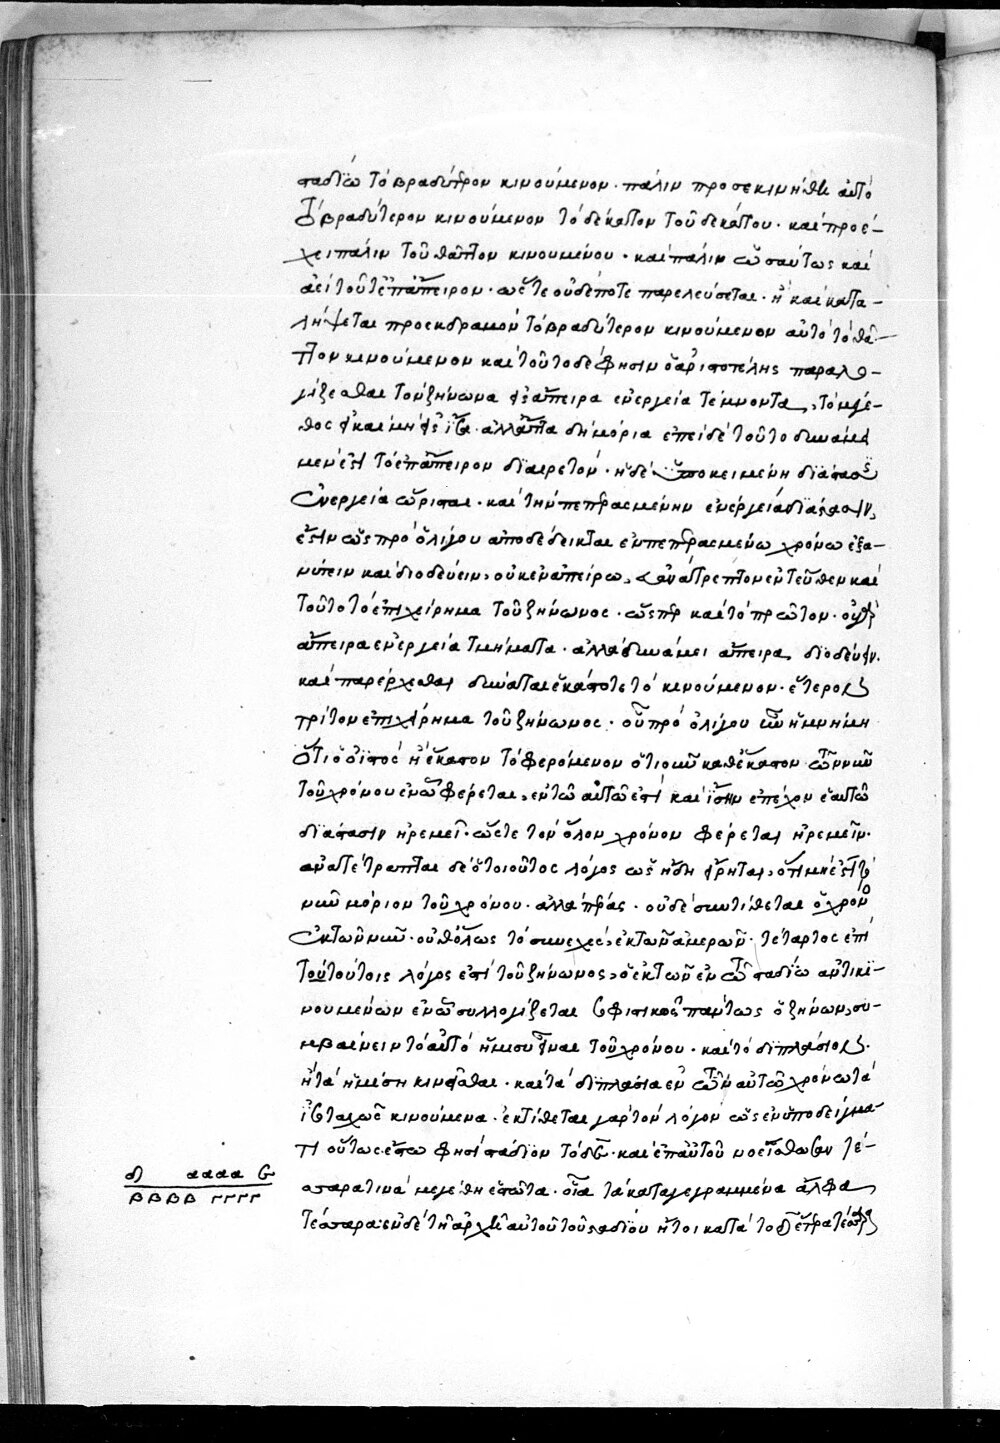 σταδίω τὸ βραδύτερον κινούμενον · πάλιν προσεκινήθη αὐτὸ
τὸ βραδύτερον κινούμενον τὸ δέκατον τοῦ δεκάτου · καὶ προέ-
χει πάλιν τοῦ θᾶττον κινουμένου · καὶ πάλιν ὡσαύτως καὶ
ἀεὶ τοῦτ' ἐπάπειρον · ὥστε οὐδέποτε παρελεύσεται · ἢ καὶ κατα-
λήψεται προεκδραμὸν τὸ βραδύτερον κινούμενον αὐτὸ τὸ θᾶ-
ττον κινούμενον καὶ τοῦτο δέ φησιν ὁ ἀριστοτέλης παραλο-
γίζεσθαι τὸν ζήνωνα εἰς ἄπειρα ἐνεργεία τέμνοντα, τὸ μέγε-
θος εἰ καὶ μὴ εἰς ἴσα · ἀλλ' ἄττα δὴ μόρια ἐπεὶ δὲ τοῦτο δυνάμει
μέν ἐστι τὸ ἐπάπειρον διαιρετόν · ἡ δὲ ὑποκειμένη διάστασις
ἐνεργεία ὥρισται · καὶ τὴν πεπερασμένην ἐνεργεία διάστασιν,
ἔστιν ὡς πρὸ ὀλίγου ἀποδέδεικται ἐν πεπερασμένω χρόνω ἐξα-
νύτειν καὶ διοδεύειν, οὐκ ἐν ἀπείρω, ἀνατρεπτέον ἐντεῦθεν καὶ
τοῦτο τὸ ἐπιχείρημα τοῦ ζήνωνος · ὥσπερ καὶ τὸ πρῶτον · οὐ γὰρ
ἄπειρα ἐνεργεία τμήματα · ἀλλὰ δυνάμει ἄπειρα, διοδεύειν
καὶ παρέρχεσθαι δύναται ἑκάστοτε τὸ κινούμενον · ἕτερον
τρίτον ἐπιχείρημα τοῦ ζήνωνος · οὗ πρὸ ὀλίγου ἐμνήσθη
ὅτι ὀϊστὸς ἢ ἕκαστον τὸ φερόμενον ὁτιοῦν καθ' ἕκαστον τῶν νῦν
τοῦ χρόνου ἐν ὧ φέρεται, ἐν τῶ αὐτῶ ἐστὶ καὶ ἴσην ἐπέχον ἑαυτῶ
διάστασιν ἠρεμεῖ · ὥστε τὸν ὅλον χρόνον φέρεται ἠρεμεῖν ·
ἀνατέτραπται δὲ ὁ τοιοῦτος λόγος ὡς ἤδη εἴρηται, ὅτι μή ἐστι τὸ
νῦν μόριον τοῦ χρόνου · ἀλλὰ πέρας · οὐδὲ συντίθεται ὁ χρόνος
ἐκ τῶν νῦν · οὐθ' ὅλως τὸ συνεχὲς, ἐκ τῶν ἀμερῶν · τέταρτος ἐπὶ
τούτοις λόγος ἐστὶ τοῦ ζήνωνος, ὁ ἐκ τῶν ἐν τῶ σταδίω ἀντικι-
νουμένων ἐν ὧ συλλογίζεται σοφιστικῶς πάντως ὁ ζήνων, συ-
μβαίνειν τὸ αὐτὸ ἥμισυ εἶναι τοῦ χρόνου · καὶ τὸ διπλάσιον ·
ἢ τὰ ἡμίση κινεῖσθαι · καὶ τὰ διπλάσια ἐν τῶ αὐτῶ χρόνω τὰ
ἰσοταχῶς κινούμενα · ἐκτίθεται γὰρ τὸν λόγον ὡς ἐν ὑποδείγμα-
τι οὕτως· ἔστω φησὶ στάδιον τὸ δς · καὶ ἐπ' αὐτοῦ νοείσθωσαν τέ-
σσαρά τινα μεγέθη ἑστῶτα · οἷα τὰ καταγεγραμμένα ἄλφα
τέσσαρα· ἐν δὲ τῆ ἀρχῆ αὐτοῦ τοῦ σταδίου ἤτοι κατὰ τὸ δ ἕτερα τέσσαρα
δ αααα ς
ββββ γγγγ